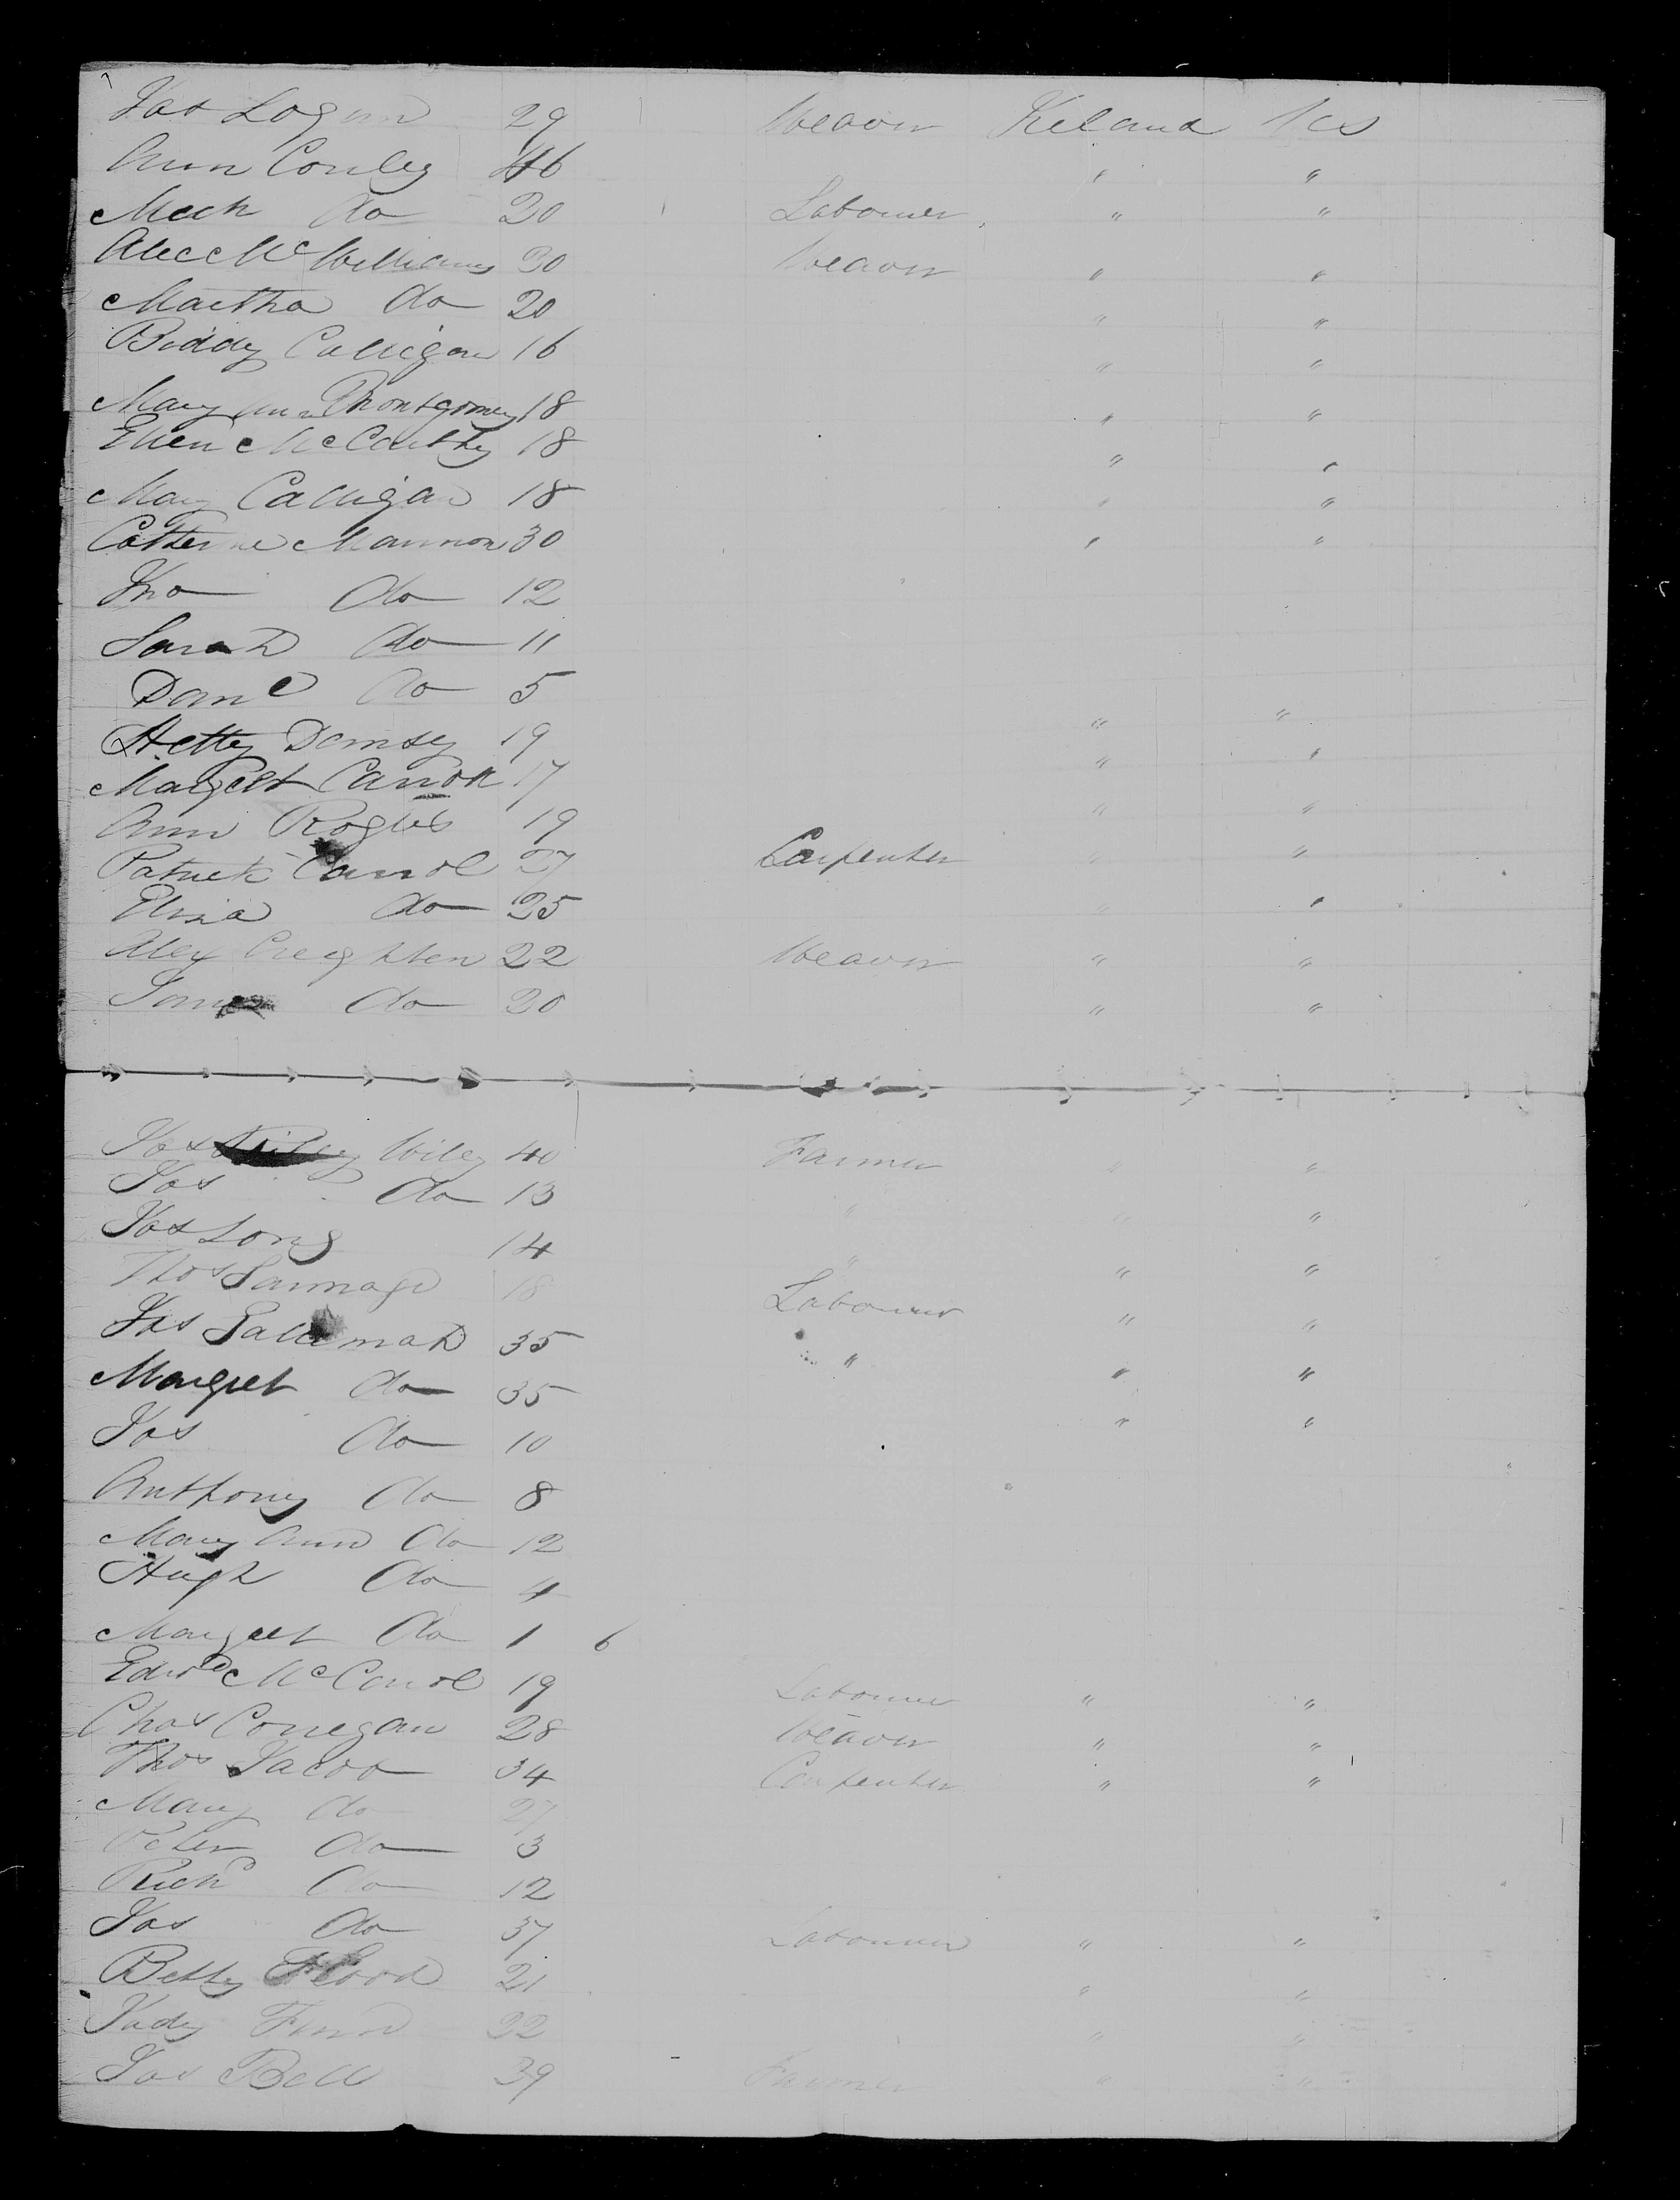 Jas Logan 29 Weaver Ireland U S
Ann Conley 46 " "
Mich do 20 Labourer " "
Alec McWilliams 30 Weaver " "
Martha do 20 " "
Biddy Calligan 16 " "
Mary Ann Montgomery 18 " "
Ellen McCarthy 18 " "
Mary Calligan 18 " "
Catherine Mannon 30 " "
Jno do 12
Sarah do 11
Danl do 5
Hetty Demsey 19 " "
Margret Carrol 17 " "
Ann Rogers 19 " "
Patrick Carrol 27 Carpenter " "
Eliza do 25 " "
Alex Creighten 22 Weaver " "
do 20 " "
Jas Wiley 40 Farmer " "
Jas do 13 " " "
Jas Long 14 " " "
Thos 18 Labourer " "
Jas 35 " " "
Margret do 35 " "
Jas do 10
Anthony do 8
Mary Ann do 12
Hugh do 4
Margret do 1 6
Edwd McCarrol 19 Labourer " "
Chas Corregan 28 Weaver " "
Thos Jacob 34 Carpenter " "
Mary do 27
Peter do 3
Richd do 12
Jas do 37 Labourer " "
Betty Flood 21 " "
Judy Finn 22 " "
Jas Bell 39 Farmer " "